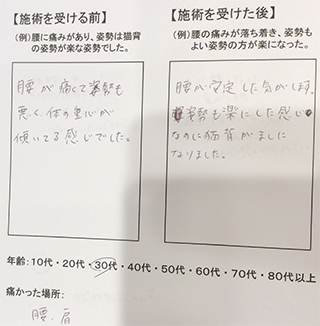 【施術を受ける前】
(例)腰に痛みがあり、姿勢は猫背
の姿勢が楽な姿勢でした。
腰が痛くて姿勢も
悪く、体の重心が
傾いてる感じでした。
【施術を受けた後】
(例)腰の痛みが落ち着き、姿勢も
よい姿勢の方が楽になった。
腰が安定した気がします。
姿勢も楽にした感じ
なのに猫背がましに
なりました。
年齢:10代・20代・30代・40代・50代・60代・70代・80代以上
痛かった場所:
腰、肩